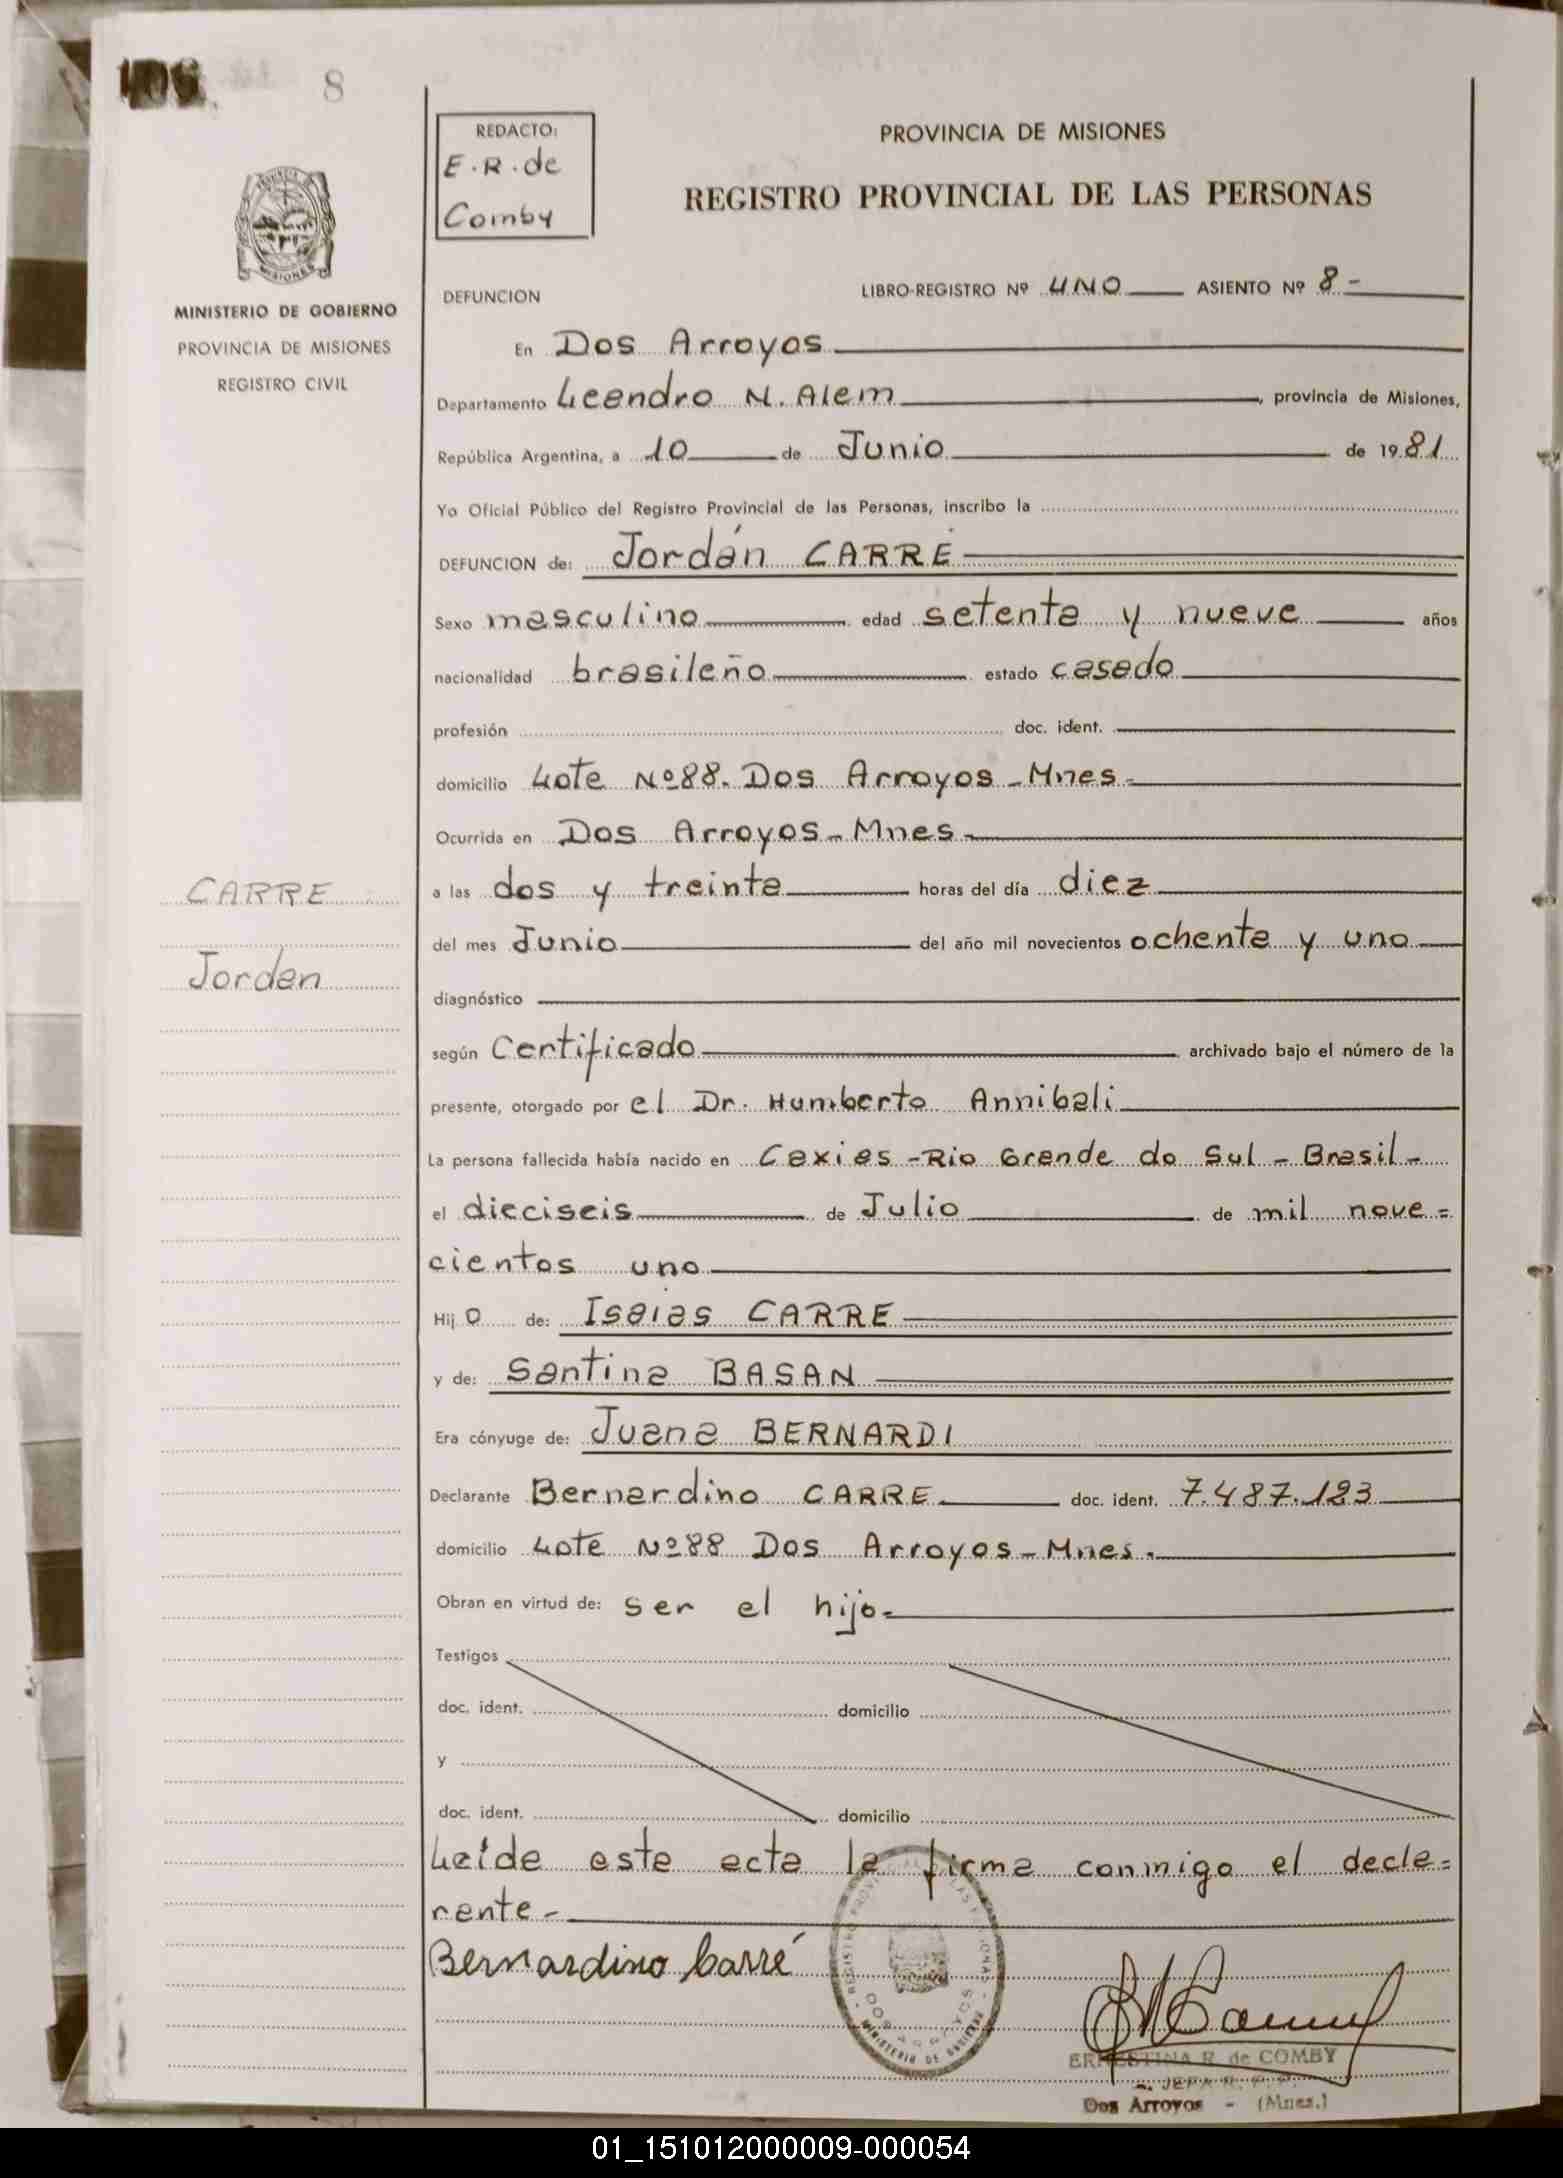 106
8
REDACTO:
E.R. de
Comby
PROVINCIA DE MISIONES
REGISTRO PROVINCIAL DE LAS PERSONAS
MINISTERIO DE GOBIERNO
PROVINCIA DE MISIONES
REGISTRO CIVIL
DEFUNCION LIBRO-REGISTRO Nº UNO ASIENTO Nº 8-
En Dos Arroyos
Departamento Leandro N. Alem, provincia de Misiones,
República Argentina, a 10 de Junio de 1981
Yo Oficial Público del Registro Provincial de las Personas, inscribo la
DEFUNCION de: Jordán CARRE
Sexo masculino edad setenta y nueve años
nacionalidad brasileño estado casado
profesión doc. ident.
domicilio Lote Nº88. Dos Arroyos - Mnes -
Ocurrida en Dos Arroyos - Mnes -
CARRE
a las dos y treinta horas del día diez
del mes Junio del año mil novecientos ochenta y uno
Jordan
diagnóstico
según Certificado archivado bajo el número de la
presente, otorgado por el Dr. Humberto Annibali
La persona fallecida había nacido en Caxias - Rio Grande do Sul - Brasil -
el dieciseis de Julio de mil nove=
cientos uno
Hijo de: Isaias CARRE
y de: Santina BASAN
Era cónyuge de: Juana BERNARDI
Declarante Bernardino CARRE doc. ident. 7.487.123
domicilio Lote Nº88 Dos Arroyos - Mnes.
Obran en virtud de: ser el hijo-
Testigos
doc. ident. domicilio
y
doc. ident. domicilio
Leída esta acta la firma conmigo el decla=
rante -
Bernardino Carré
DOS ARROYOS
MINISTERIO DE GOBIERNO
ERNESTINA R. de COMBY
JEFA R. P. P.
Dos Arroyos - (Mnes.)
01_151012000009-000054